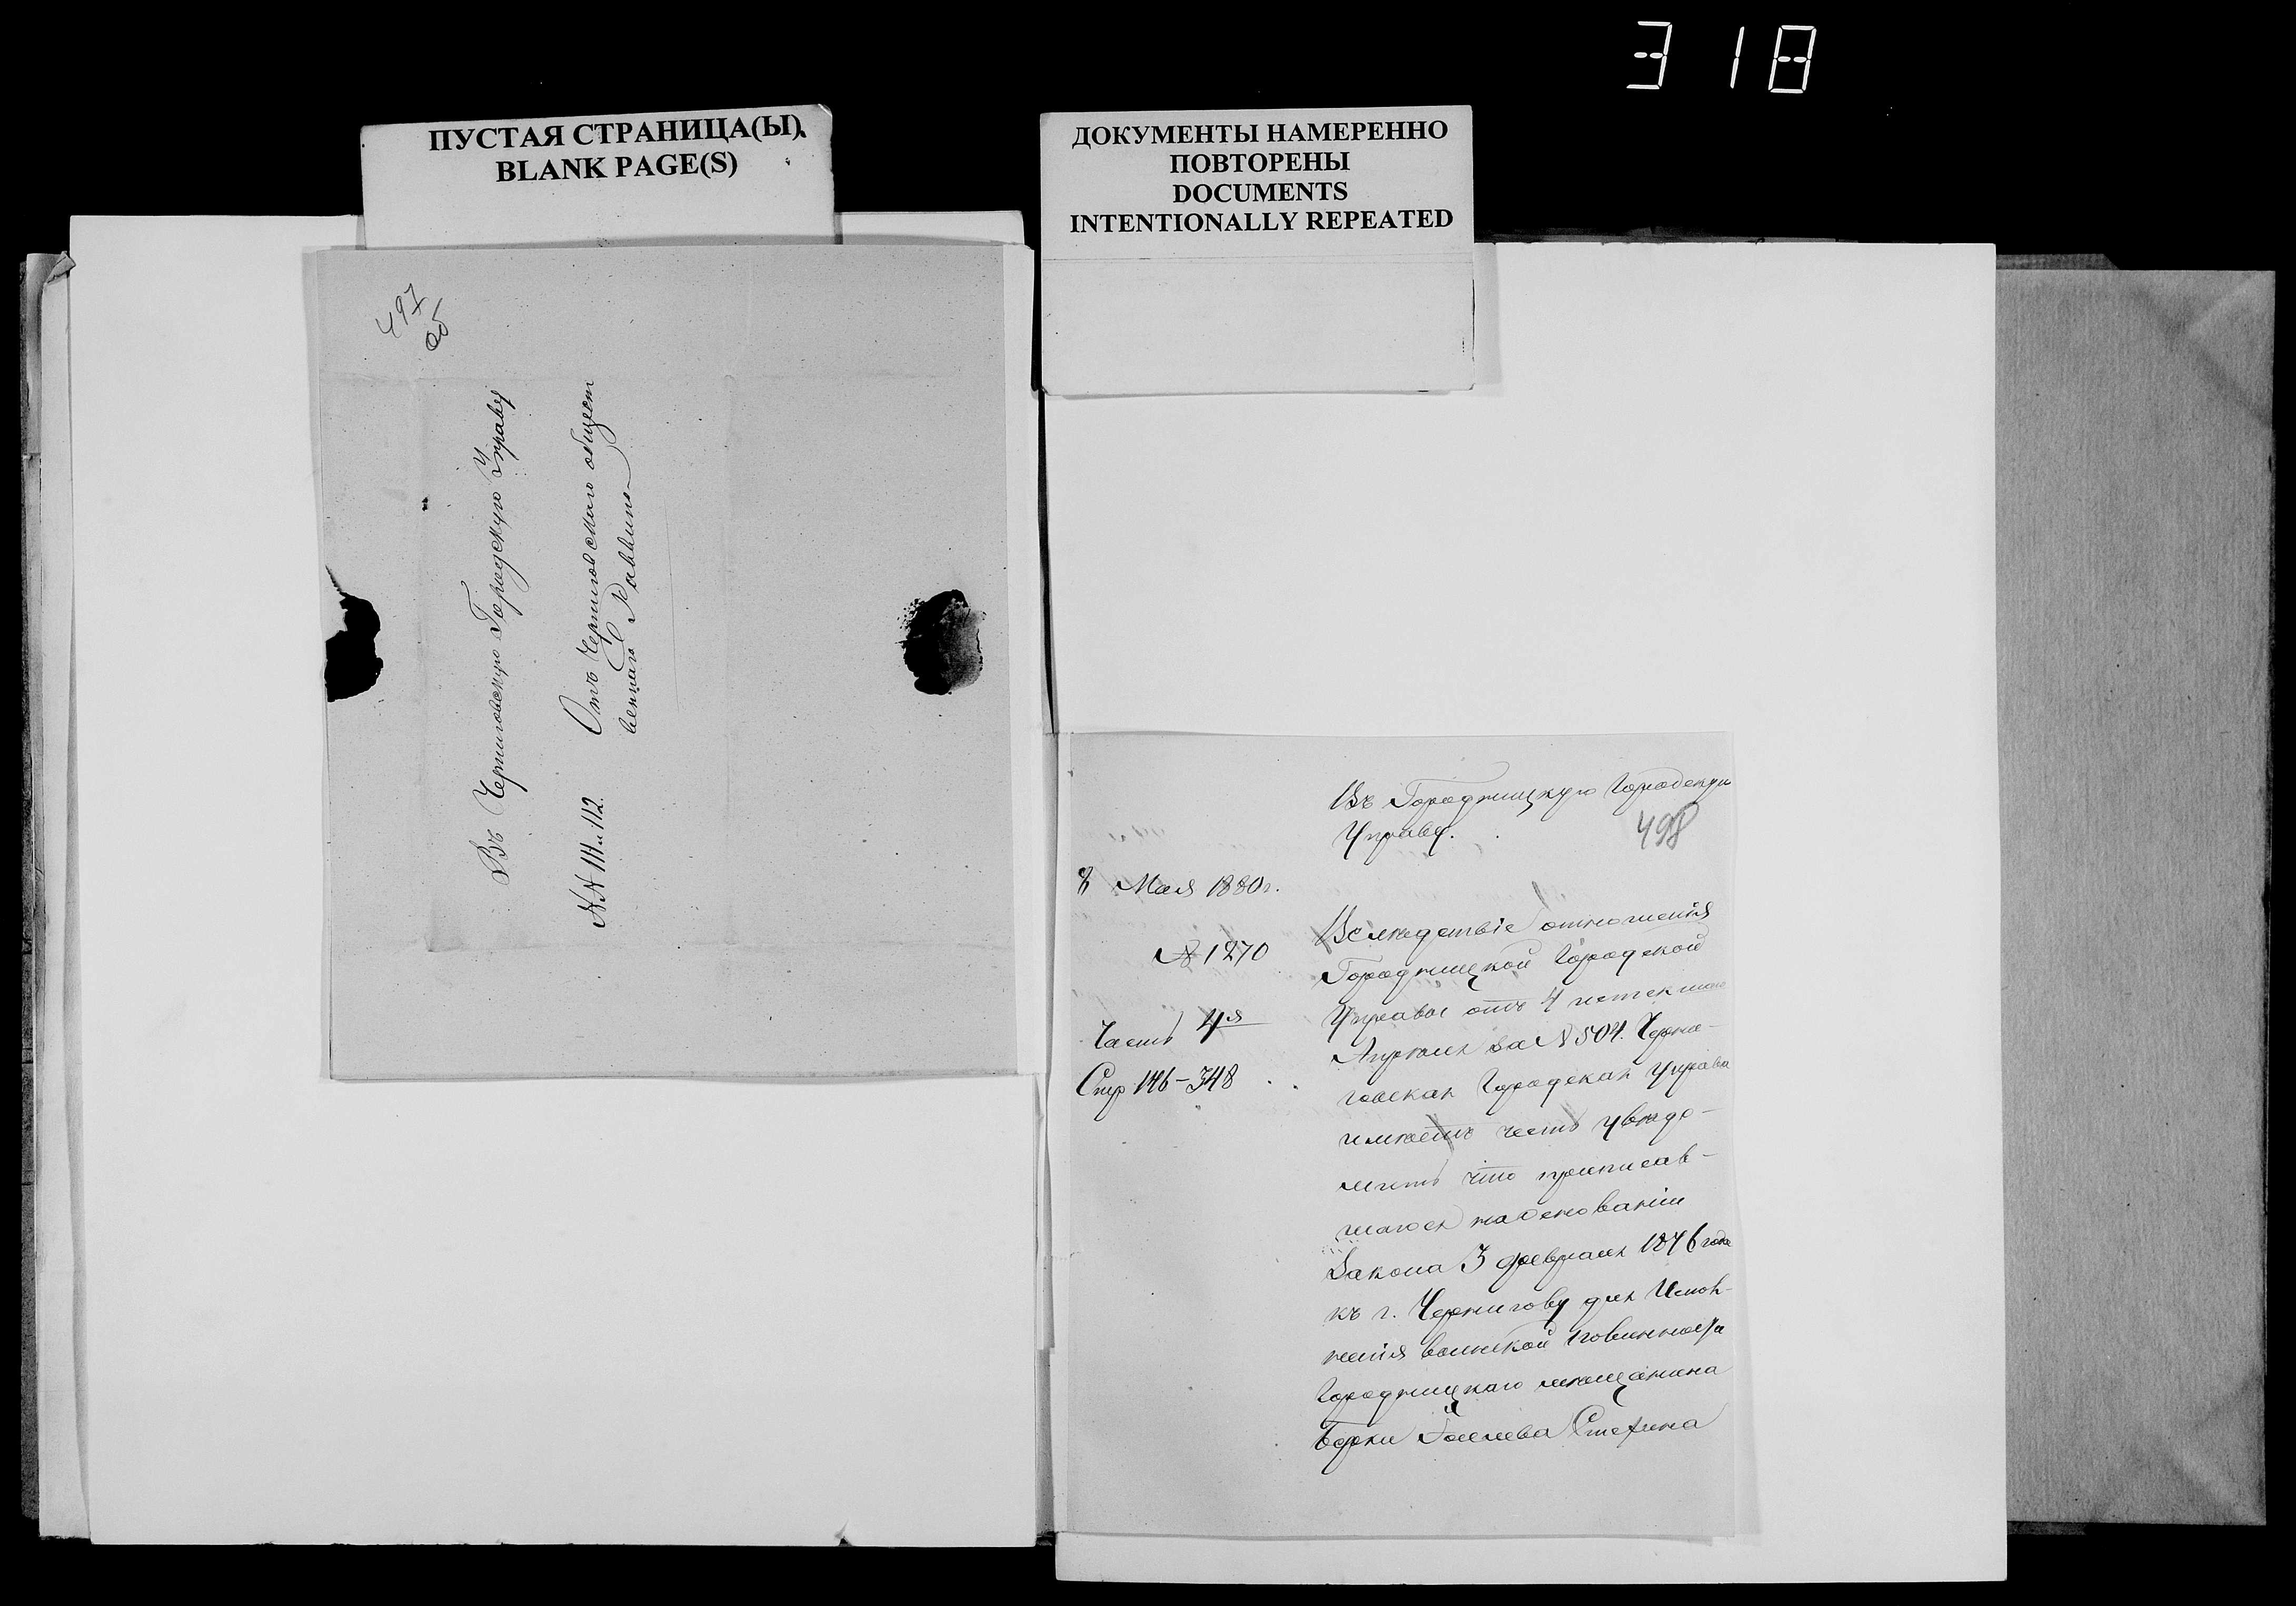 318
ПУСТАЯ СТРАНИЦА(Ы)
BLANK PAGE(S)
ДОКУМЕНТЫ НАМЕРЕННО
ПОВТОРЕНЫ
DOCUMENTS
INTENTIONALLY REPEATED
497
об
Въ Черниговскую Городскую Управу
Отъ Черниговскаго общест
веннаго Раввина
№№ 111 и 112.
Въ Городницкую Городскую
Управу.
498
8 Мая 1880 г.
№ 1270
Часть 4я
Стр 146-348
Вследствіе отношенія
Городницкой Городской
Управы отъ 4 истекшаго
Апреля за № 504. Черни-
говская Городская Управа
имѣетъ честь увѣдо-
мить что приписав-
шагося на основаніи
Закона 3 февраля 1876 года
къ г. Чернигову для Испол-
ненія воинской повинности
Городницкаго мѣщанина
Берки